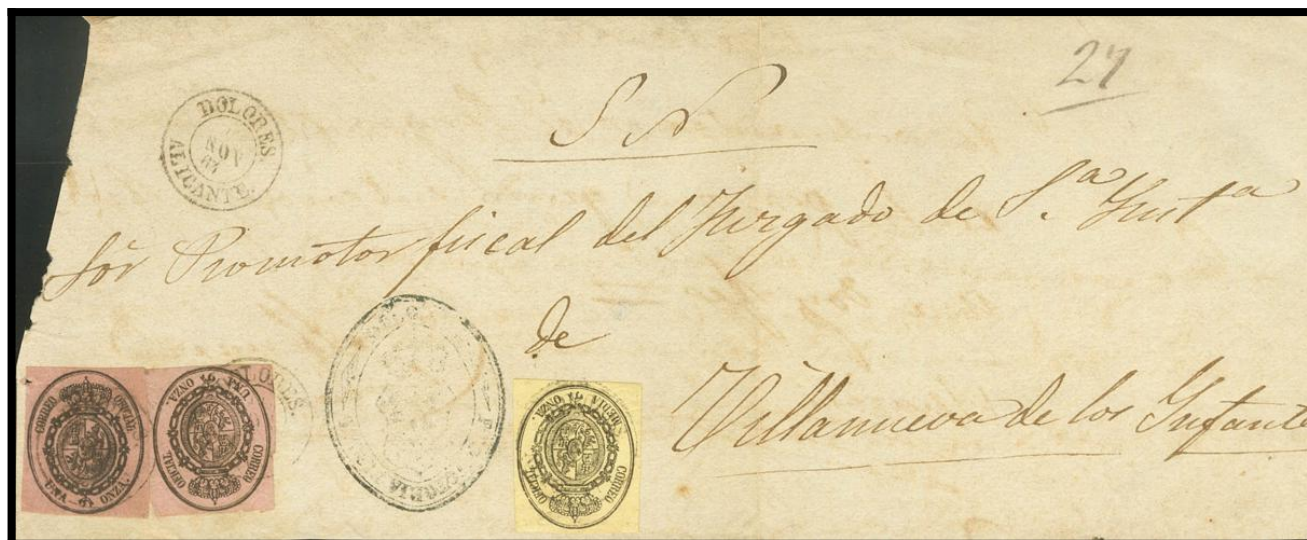 27
S N
DOLORES
NOV
ALICANTE.
Sōr Promotor fiscal del Juzgado de S.ª Inst.ª
de
Villanueva de los Infante
CORREO OFICIAL
UNA ONZA.
CORREO OFICIAL.
UNA ONZA.
DOLORES.
CORREO OFICIAL
MEDIA ONZA.